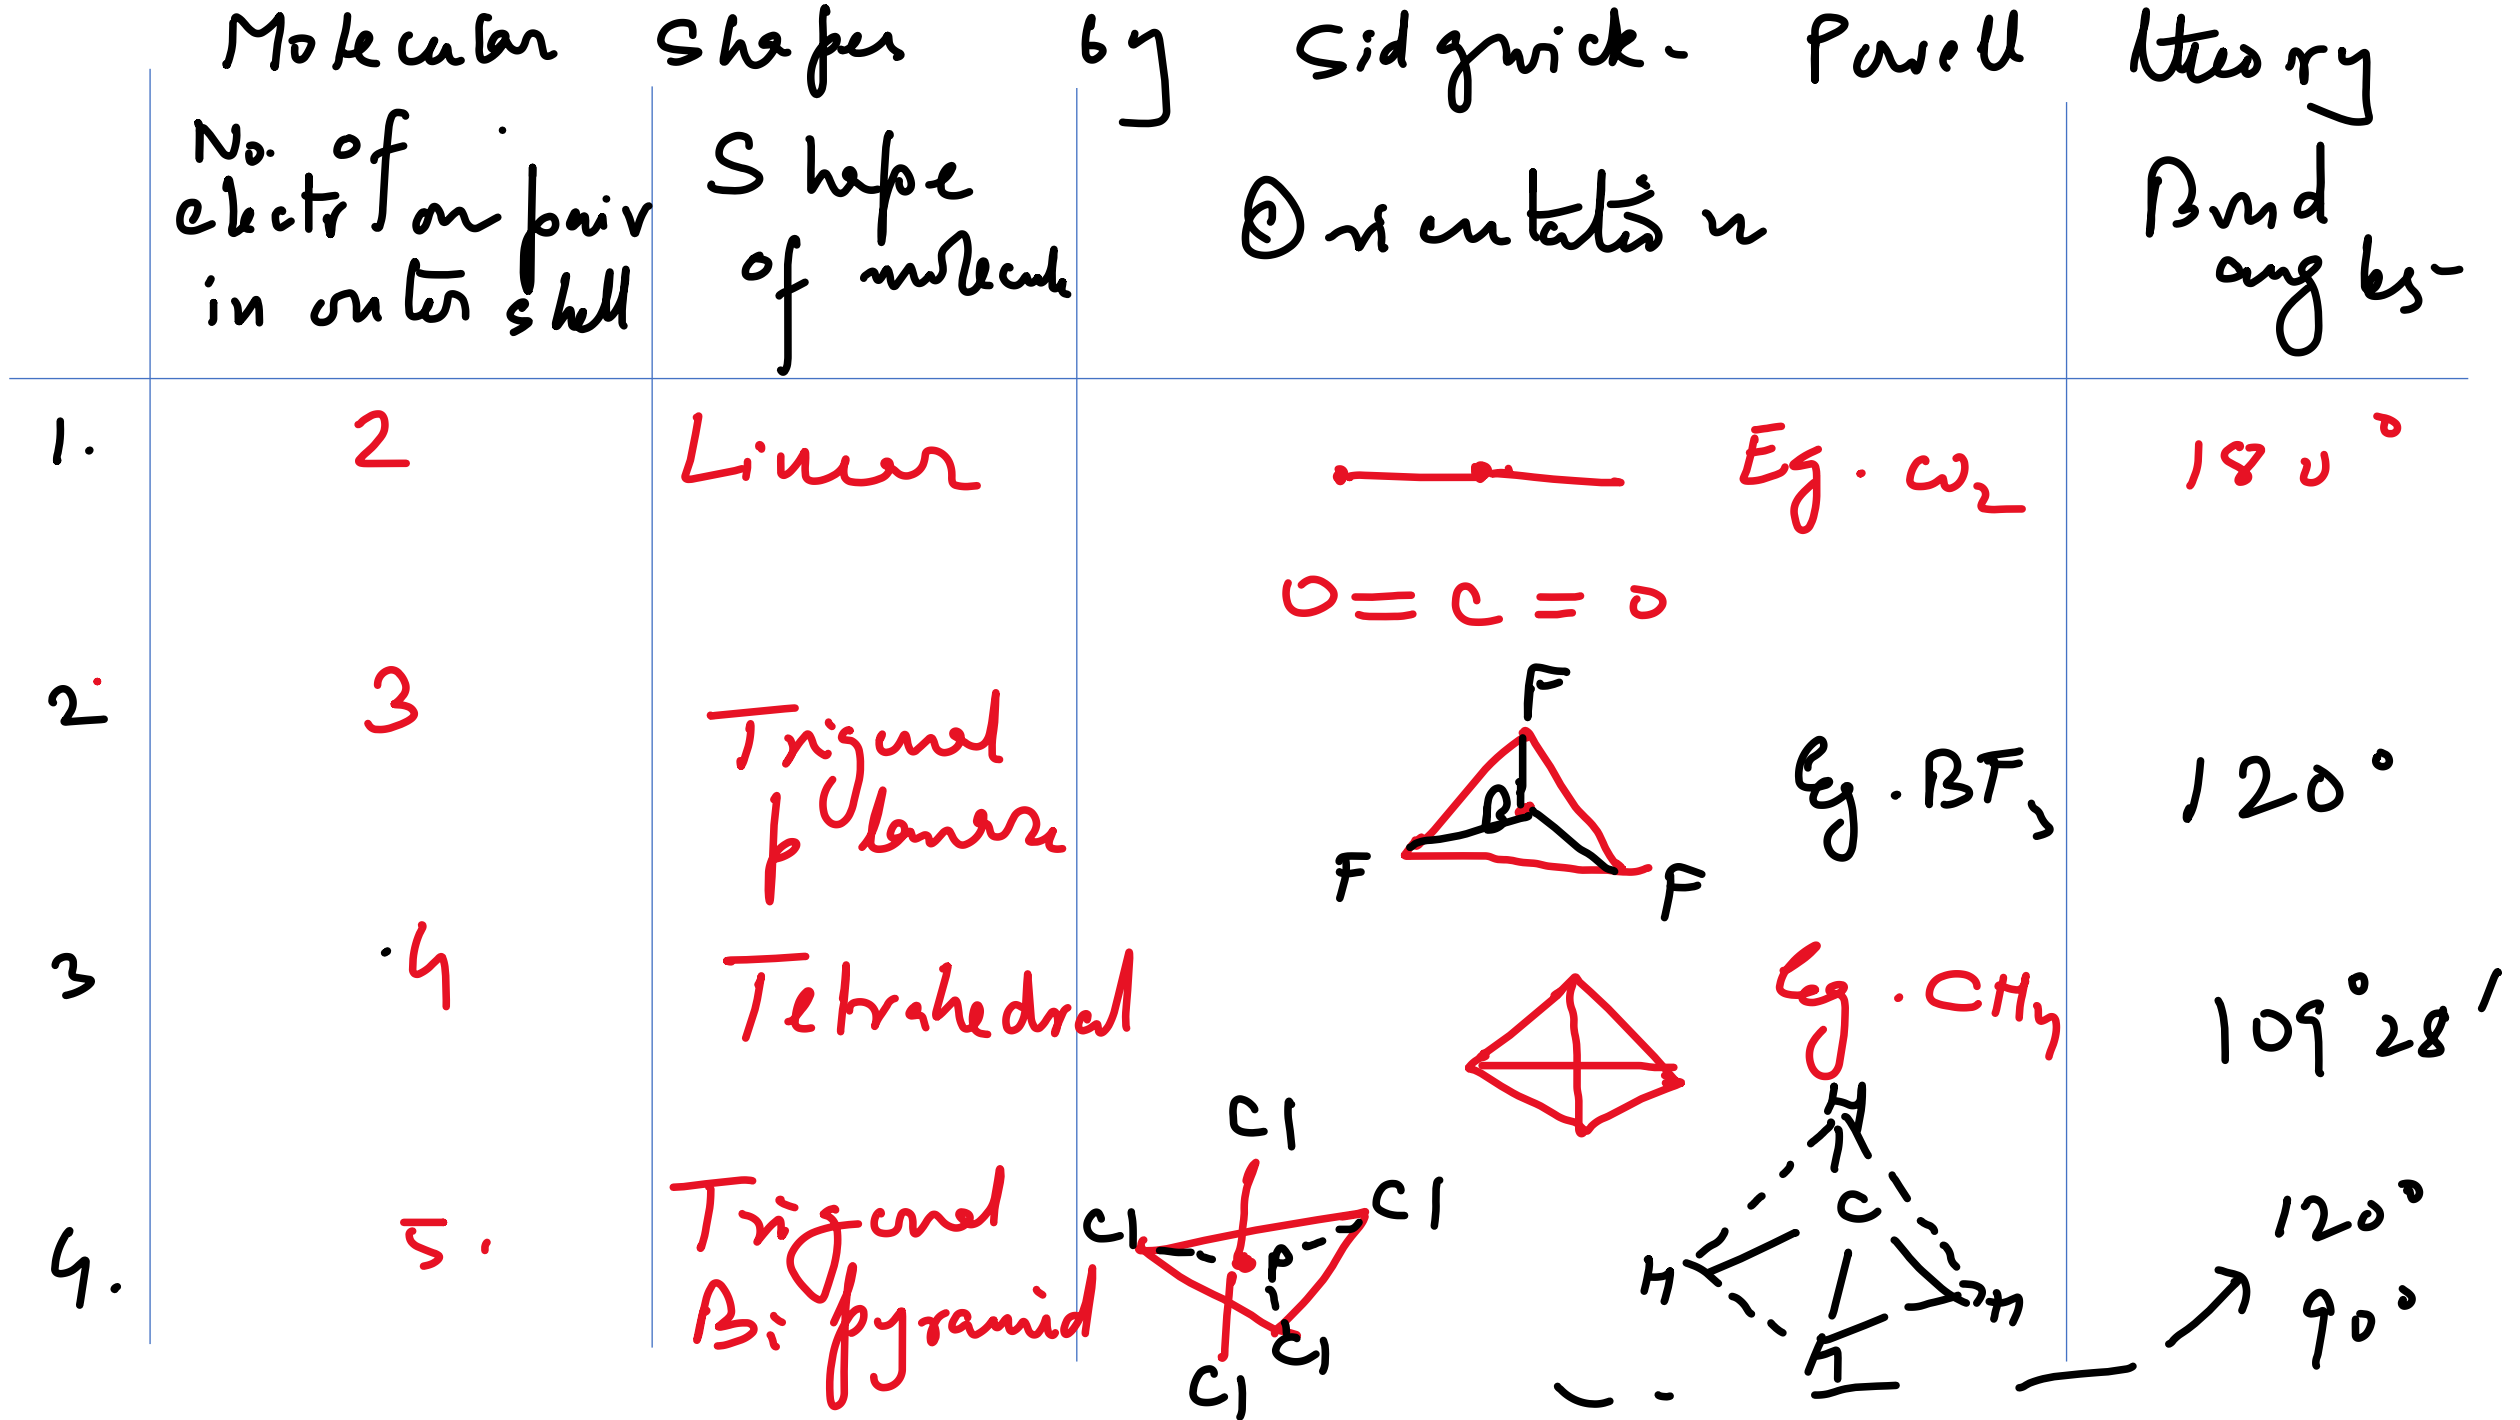 Molecular Shapes by Sidgwick - Powell theory
No. of electron pair in outer shell
Shape of molecule
Orientation
Bond angles-
1. 2 Linear Eg. CO2 180°
O = C = O
2. 3 Trigonal planar F B F F Eg. BF3 120°
3 4 Tetrahedral Eg. CH4 109°28'
H C H H H
4. 5. Trigonal Bipyramid Cl Cl Cl P Cl Cl 120° 90°